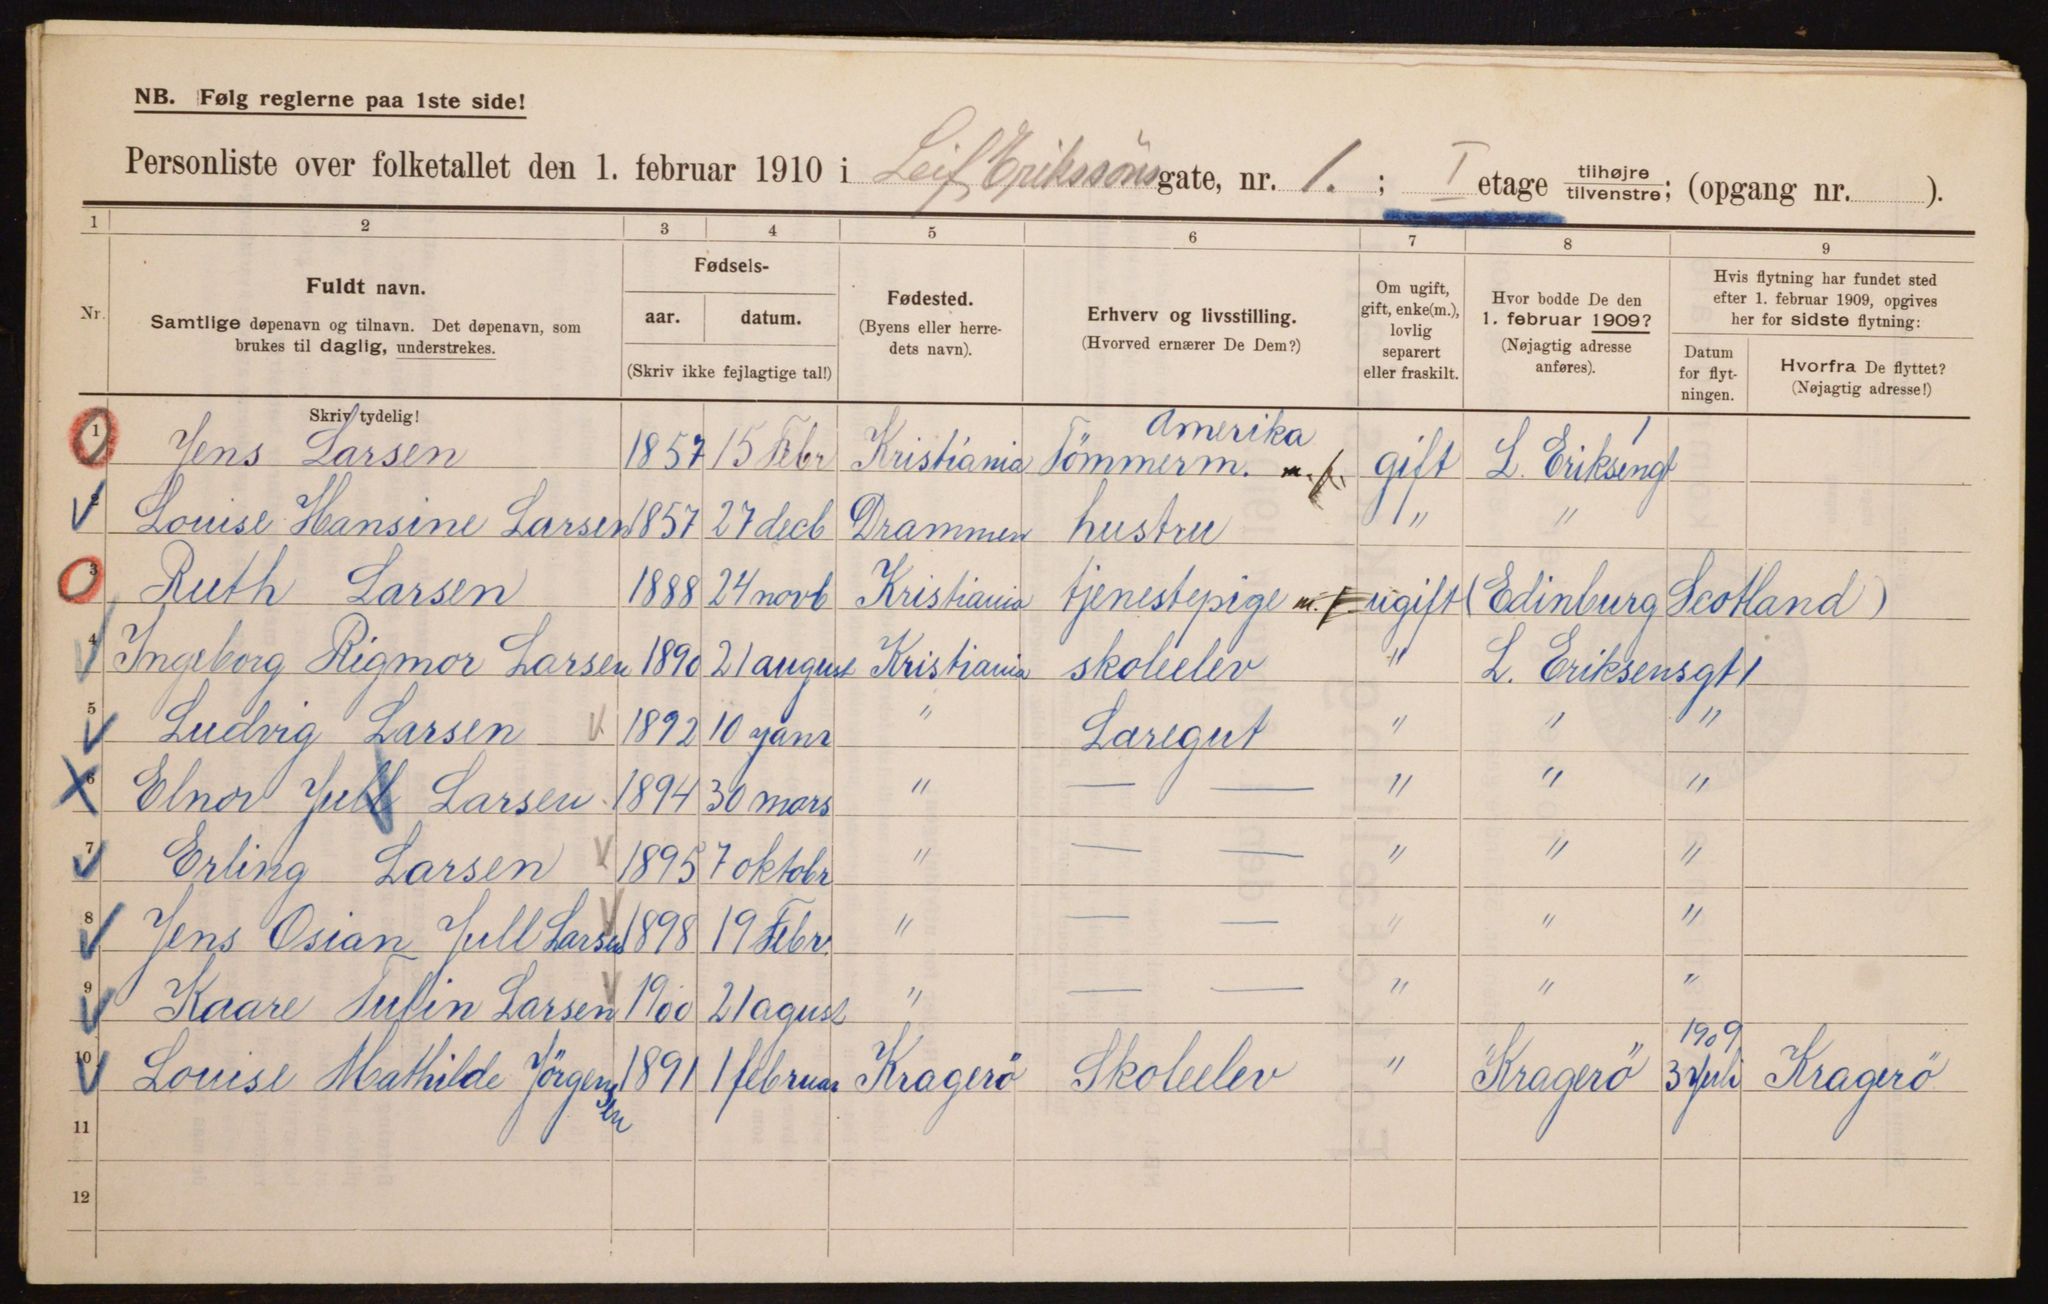 NB. Følg reglerne paa 1ste side!
Personliste over folketallet den 1. februar 1910 i Leif Erikssöns gate, nr. 1. ; I etage tilhøjre tilvenstre; (opgang nr. ).
1 2 3 4 5 6 7 8 9
Nr.
Fuldt navn.
Samtlige døpenavn og tilnavn. Det døpenavn, som
brukes til daglig, understrekes.
Skriv tydelig!
Fødsels-
aar. datum.
(Skriv ikke fejlagtige tal!)
Fødested.
(Byens eller herre-
dets navn).
Erhverv og livsstilling.
(Hvorved ernærer De Dem?)
Om ugift,
gift, enke(m.),
lovlig
separert
eller fraskilt.
Hvor bodde De den
1. februar 1909?
(Nøjagtig adresse
anføres).
Hvis flytning har fundet sted
efter 1. februar 1909, opgives
her for sidste flytning:
Datum
for flyt-
ningen.
Hvorfra De flyttet?
(Nøjagtig adresse!)
Amerika
1 Jens Larsen 1857 15 Febr Kristiania Tömmerm. m.p. gift L. Eriksengt 1
2 Louise Hansine Larsen 1857 27 decb Drammen hustru " "
3 Ruth Larsen 1888 24 novb Kristiania tjenestepige ugift (Edinburg Scotland)
4 Ingeborg Rigmor Larsen 1890 21 august Kristiania skoleelev " L. Eriksensgt 1
5 Ludvig Larsen 1892 10 janr " Laregut " " "
6 Elnor Jull Larsen 1894 30 mars " — — " " "
7 Erling Larsen 1895 7 oktobr " — — " " "
8 Jens Osian Jull Larsen 1898 19 Febr. " — — " " "
9 Kaare Tulin Larsen 1900 21 agust " — — " " "
1909
10 Louise Mathilde Jörgensen 1891 1 februar Kragerö Skoleelev " Kragerö 3 Juli Kragerö
11
12